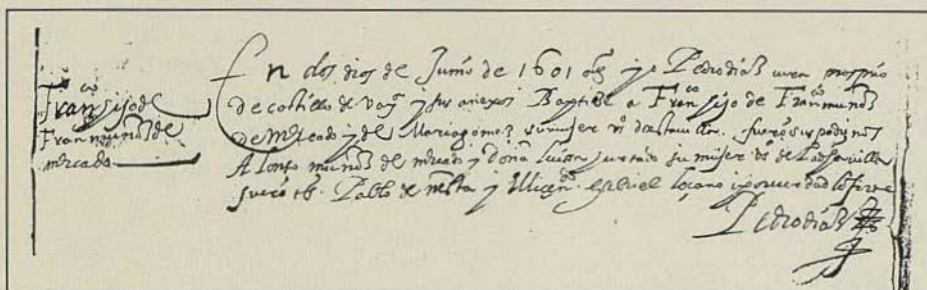 Fran^co hijo de
Fran muños de
mercado
En dos dias de Junio de 1601 años yo Pedro dias cura proprio
de castillo de y sus anexos Baptice a Fran^co hijo de Fran^co muños
de Mercado y de Maria gomez su muger v^os desta villa. fueron sus padrinos
Alonso muños de mercado y Doña Luissa hurtado su muger v^os de villa
fueron t^os. Pablo de y el licen^do. Gabriel loçano y por verdad lo firme
Pedro dias